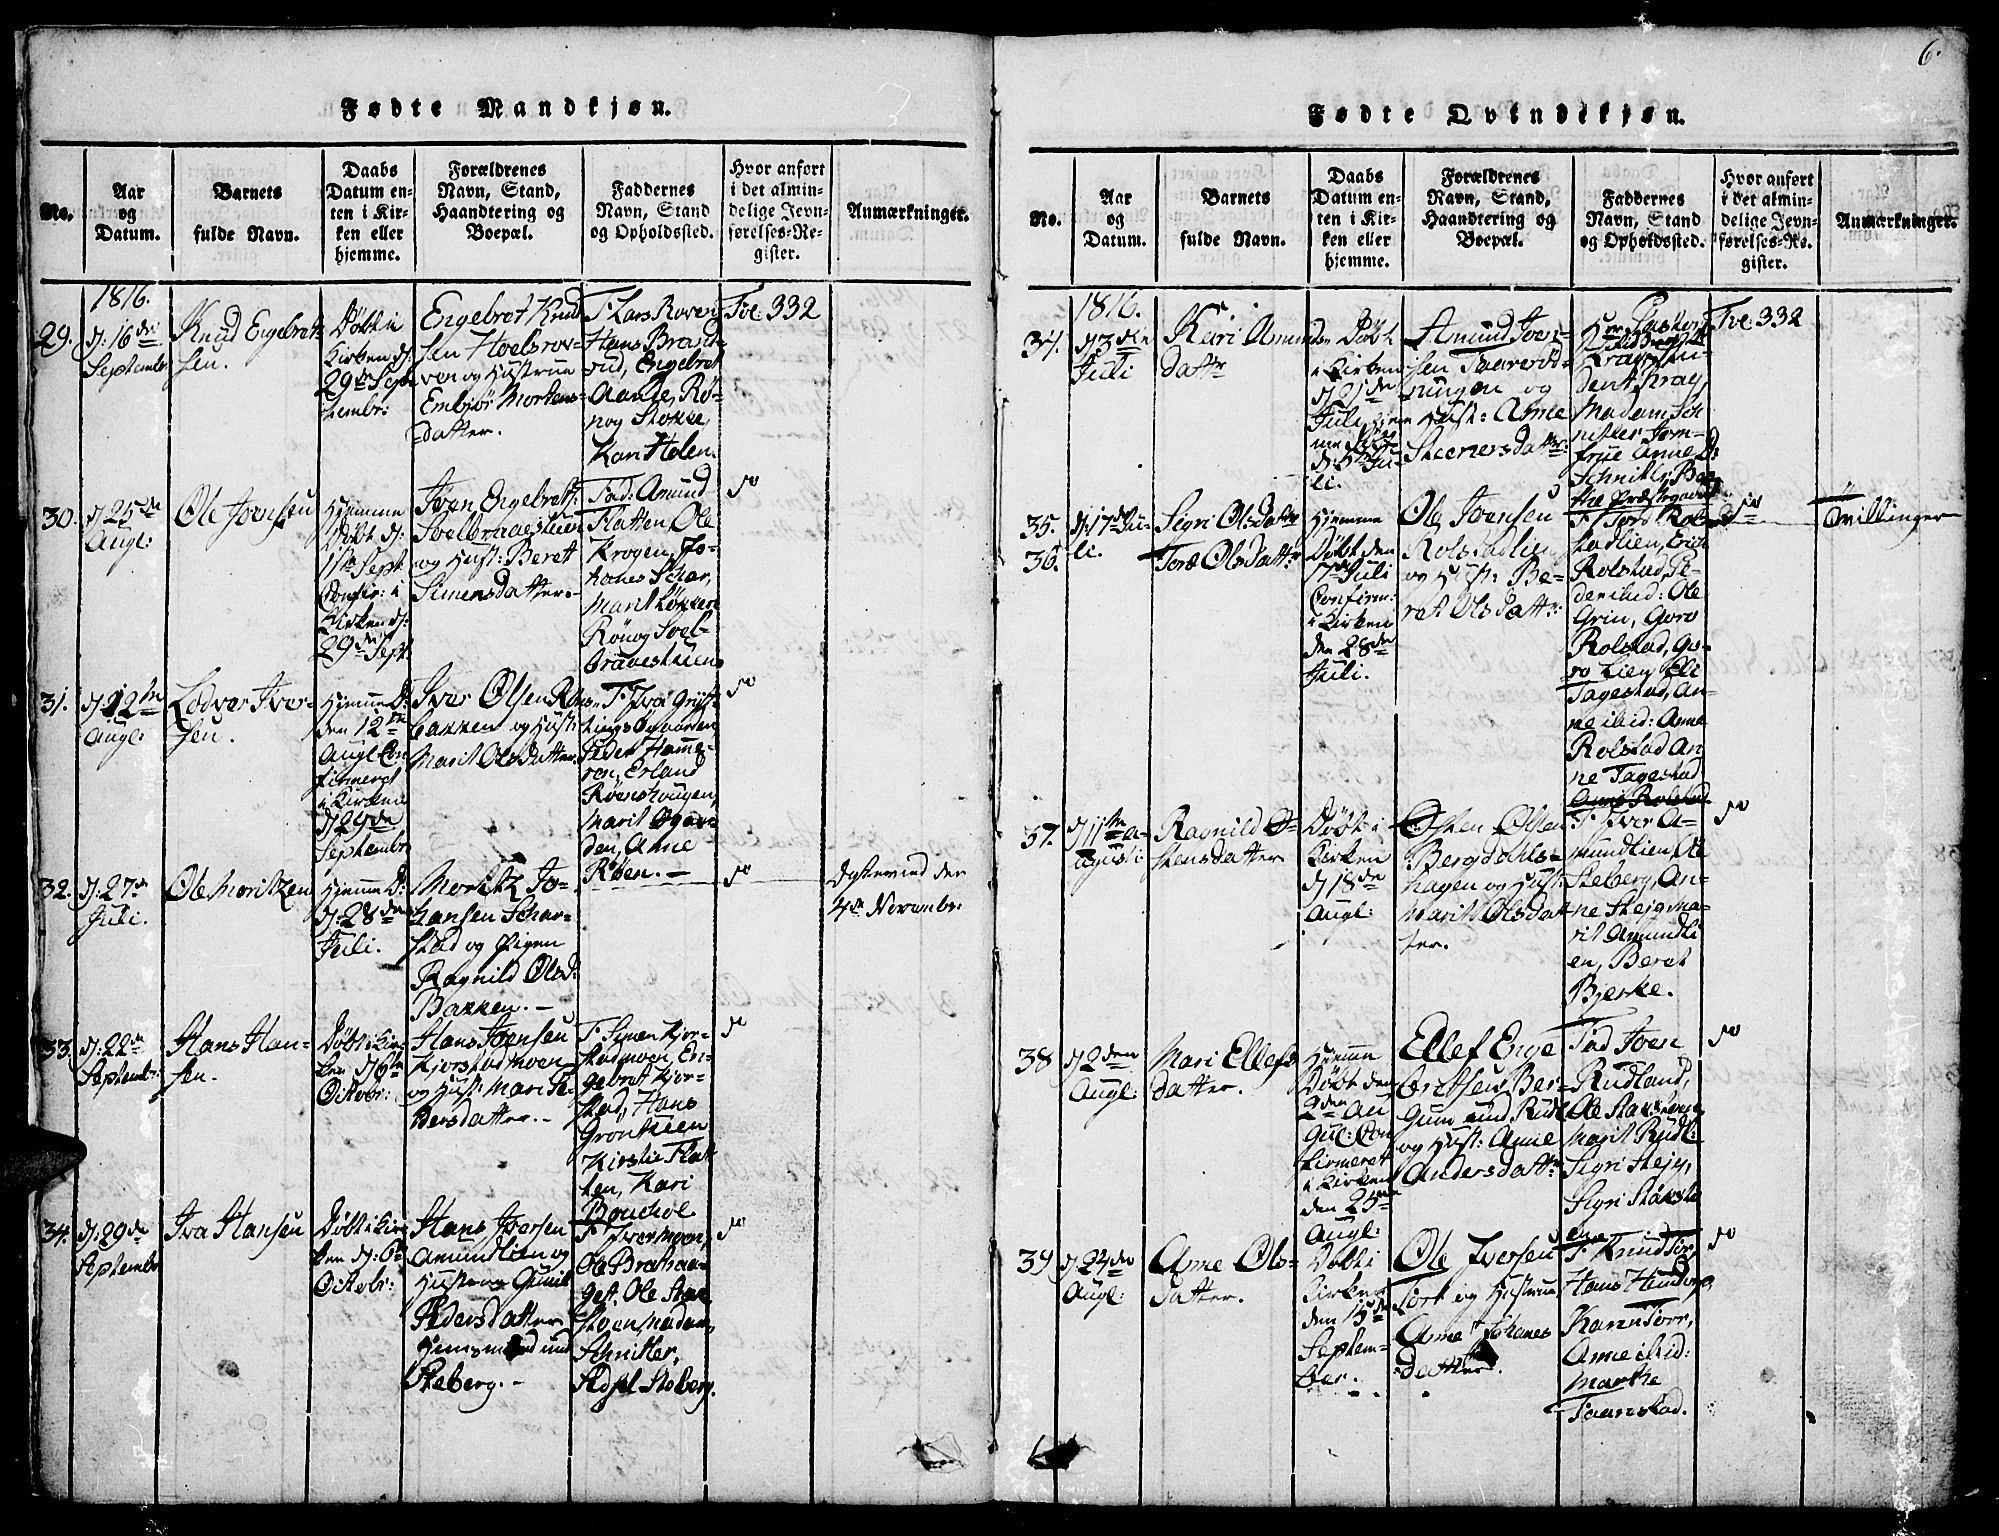 6.
Fødte Mandkjøn.
No.
Aar
og
Datum.
Barnets
fulde Navn.
Daabs
Datum en-
ten i Kir-
ken eller
hjemme.
Forældrenes
Navn, Stand,
Haandtering og
Boepæl.
Faddernes
Navn, Stand
og Opholdssted.
Hvor anført
i det almin-
delige Jevn-
førelses-Re-
gister.
Anmærkninger.
1816.
29.
d: 16de
Septembr
Knud Engebret-
sen.
Døbt i
Kirken d:
29de Sept
tembr:
Engebret Knud
sen Hoelsro-
ven og Hustrue
Embjør Mortens-
datter.
F. Lars Roven
Hans Brand-
rud, Engebret
Aanse, Rø-
nog Stokke,
Kari Holen.
Fol: 332
30.
d: 25de
Augt:
Ole Joensen
Hjemme
døbt d:
1ste Sept
Confir: i
Kirken d:
29de Sept:
Joen Engebrets:
Solbraaestuen
og Hust: Beret
Simensdatter.
Fad: Amund
Flatten, Ole
Krogen, Jo-
hanes Schar,
Marit Løkken
Rønog Sol-
braaestuen
do
31.
d: 12te
Augt:
Lodver Iver-
sen.
Hjemme D:
den 12te
Augt Con
firmeret
i Kirken
d 29de
Septembr
Iver Olsen Røns-
bakken og Hust:
Marit Olsdatter.
Peder Hamme-
ren, Erland
Røenshougen,
Marit Ogaar-
den, Anne
Røen.
do
32.
d: 27de
Juli.
Ole Moritzen
Hjemme D:
d: 28de
Juli.
Moritz Jo-
hansen Schar-
stad og Pigen
Ragnild Olsd:
Bakken.
do
4de Novembr:
33.
d: 22de
Septembr:
Hans Han-
sen.
Døbt i Kir-
ken d 6te
Octobr:
Hans Joensen
Kjorstadmoen
og Hust: Mari Si-
versdatter.
F. Simen Kjor-
stadmoen, En-
gebret Kjor-
stad, Hans
Gronlien
Kirstie Flat-
ten, Kari
do
34.
d: 29de
Septembr
Iva Hansen
Døbt i Kir-
ken d: 6te
Octobr:
Hans Iversen
Amundlien og
Hustrue Gunil
Pedersdatter
Huusmand und
Steberg.
F. Iver Moen,
get, Ole Stor
stuen, Madam
Schnitler,
do
Fødte Qvindekjøn.
No.
Aar
og
Datum.
Barnets
fulde Navn.
Daabs
Datum en-
ten i Kir-
ken eller
hjemme.
Forældrenes
Navn, Stand,
Haandtering og
Boepæl.
Faddernes
Navn, Stand
og Opholdssted.
Hvor anført
i det almin-
delige Jevn-
førelses-Re-
gister.
Anmærkninger.
1816.
34.
Juli
Kari Amunds-
datter
Døbt
i Kirken
d 21de
Juli
Amund Iver-
ningen og
Hust: Anne
Steenersdattr:
dent Krag,
Madam Sch
nitler Jom-
frue Anne D:
Fol: 332
35.
36.
d: 17de Ju-
li.
Sigri Olsdatter
Tore Olsdatter
Hjemme
Døbt den
17de Juli
Confirm:
i Kirken
den 28de
Juli.
Ole Joensen
Rolstadlien
og Hust: Be-
ret Olsdattr:
stadlien, Erich
Rolstad, Pe-
der ibid: Ole
Grin, Goro
Rolstad, Go-
ro Lien, Eli
Tagestad, An-
ne ibid: Anne
Rolstad An
ne Tagestad
do
Tvillinger
37.
d 11te A-
ugusti
Ragnild Ø-
stensdatter
Døbt i
Kirken
d 18de
Augt:
Østen Olsen
Bergdohls-
hagen og Hust:
Marit Olsdat-
ter.
F. Iver A-
mundlien, Ole
Steberg, An-
ne Steig Ma-
rit Amundli
en, Beret
Bjerke.
do
38
d 2den
Augt:
Mari Ellefs
datter.
Hjemme
Døbt den
2den Au
gut: Con
firmeret
i Kirken
den 25de
Augt:
Ellef Enge
bretsen Ber-
gum und. Rudl:
og Hust: Anne
Andersdattr
Fad Joen
Rudland,
Marit Rudl:
Sigri Steig,
do
39
d 24de
Augt:
Anne Ols-
datter.
Døbt i
Kirken
den 15de
Septem-
ber.
Ole Iversen
Torr og Hustrue
Anne Johanes
datter.
F. Knud Torr,
Hans Hundorp,
Karen Torr,
Anne ibid:
Marthe
Taarstad.
do